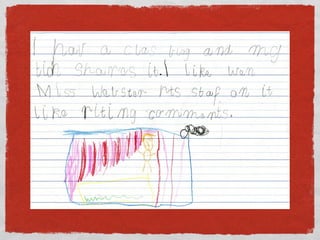 I hav a clas blog and my
tich shares it. I like wen
Miss Webster rits staf on it
like riting comments.